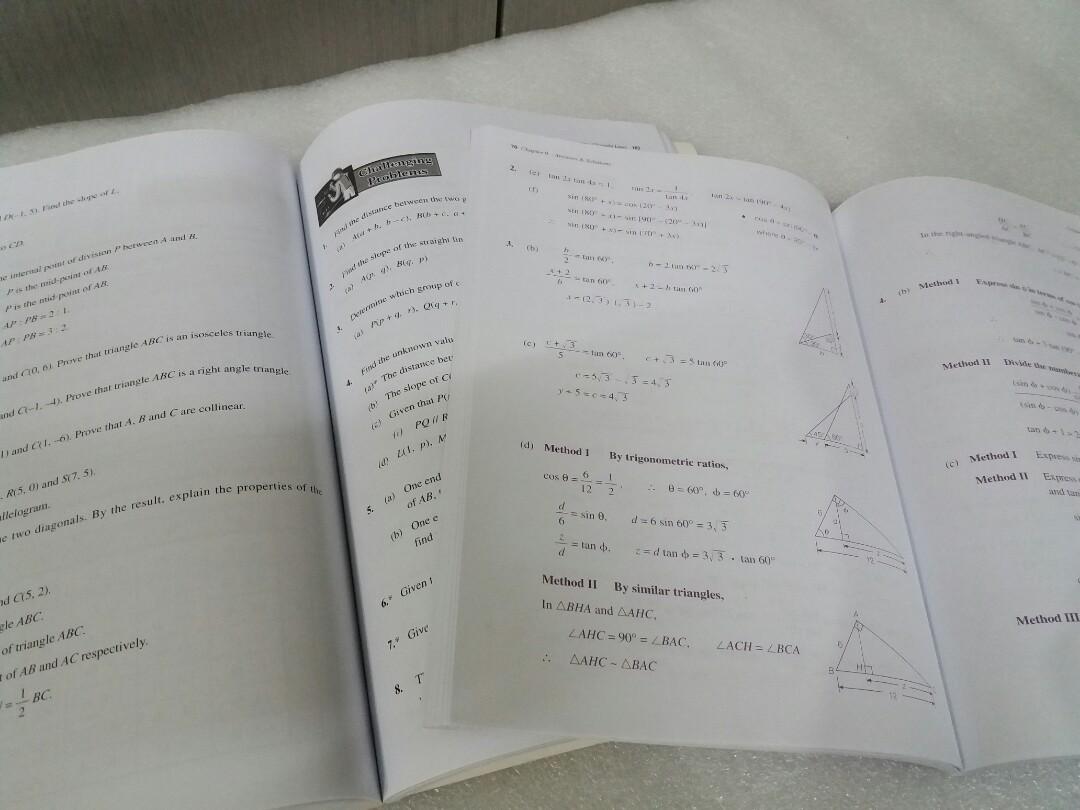 D(-1, 5). Find the slope of L.
CD.
internal point of division P between A and B.
P is the mid-point of AB.
P is the mid-point of AB.
AP : PB = 2 : 1.
AP : PB = 3 : 2.
and C(0, 6). Prove that triangle ABC is an isosceles triangle.
and C(-1, -4). Prove that triangle ABC is a right angle triangle.
and C(1, -6). Prove that A, B and C are collinear.
R(5, 0) and S(7, 5).
two diagonals. By the result, explain the properties of the
C(5, 2).
ABC.
of triangle ABC.
of AB and AC respectively.
= 1/2 BC.
Challenging
Problems
1. Find the distance between the two
(a) A(a + b, b - c), B(b + c, a +
2. Find the slope of the straight
(a) A(p, q), B(q, p)
3. Determine which group of
(a) P(p + q, r), Q(q + r,
4. Find the unknown
(a)* The distance
(b) The slope of
(c) Given that
(i) PQ // R
(d) L(1, p), M
5. (a) One end
of AB,
(b) One
find
6.* Given
7.*
8.
70 Chapter 6
2. (e) tan 2x tan 4x = 1, tan 2x = 1/tan 4x, tan 2x = tan (90° - 4x)
(f) sin (80° + x) = cos (20° - 3x)
sin (80° + x) = sin [90° - (20° - 3x)]
sin (80° + x) = sin (70° + 3x)
3. (b) b/2 = tan 60°, b = 2 tan 60° = 2√3
x + 2/b = tan 60°, x + 2 = b tan 60°
x = (2√3)(√3) - 2
(c) c + √3/5 = tan 60°, c + √3 = 5 tan 60°
c = 5√3 - √3 = 4√3
y + 5 = c = 4√3
(d) Method I By trigonometric ratios,
cos θ = 6/12 = 1/2, ∴ θ = 60°, ϕ = 60°
d/6 = sin θ, d = 6 sin 60° = 3√3
z/d = tan ϕ, z = d tan ϕ = 3√3 · tan 60°
6
θ
12
Method II By similar triangles,
In △BHA and △AHC,
∠AHC = 90° = ∠BAC, ∠ACH = ∠BCA
∴ △AHC ~ △BAC
A
6
B
H
z
12
In the right-angled triangle
4. (b) Method I Express sin
Method II Divide the
tan ϕ + 1 = 2
(c) Method I Express
Method II Express
and tan
Method III